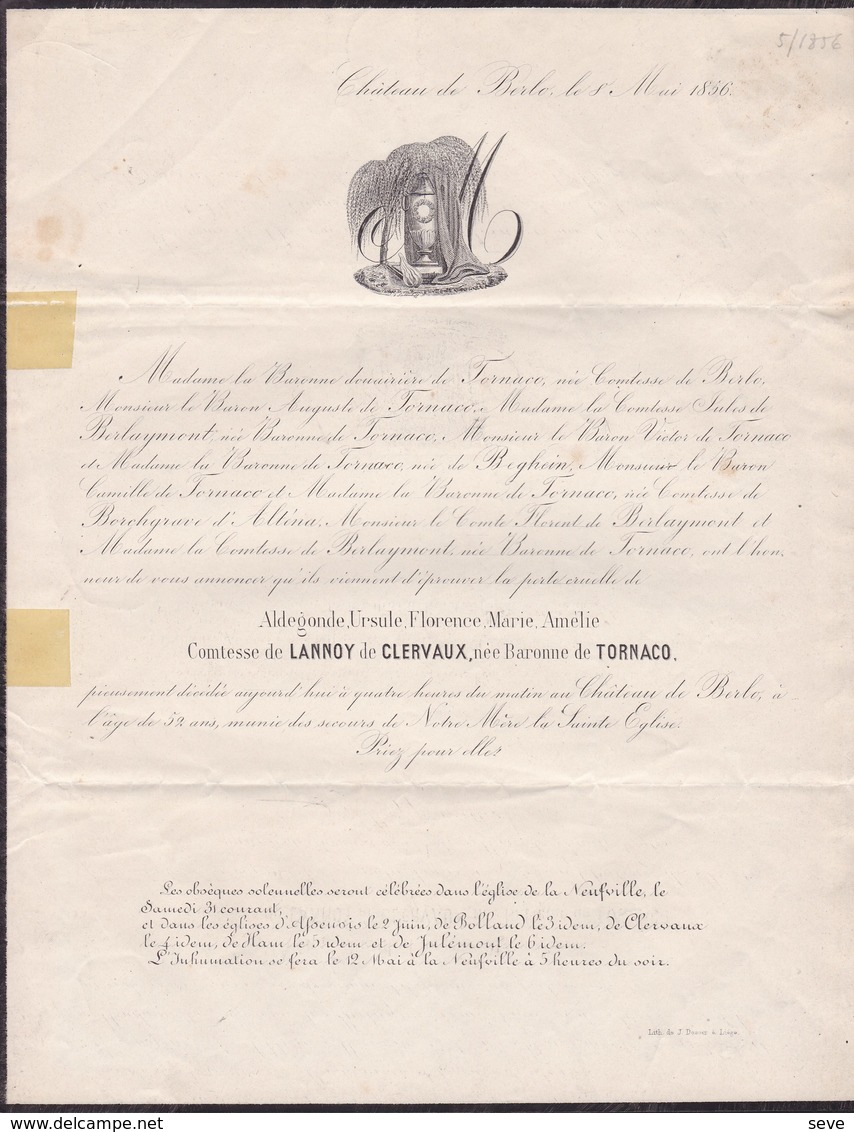 5/1856
Château de Berlo, le 8 Mai 1856.
M
Madame la Baronne douairière de Tornaco, née Comtesse de Berlo,
Monsieur le Baron Auguste de Tornaco, Madame la Comtesse Jules de
Berlaymont, née Baronne de Tornaco, Monsieur le Baron Victor de Tornaco
et Madame la Baronne de Tornaco, née de Beghein, Monsieur le Baron
Camille de Tornaco et Madame la Baronne de Tornaco, née Comtesse de
Borchgrave d'Alténa, Monsieur le Comte Florent de Berlaymont et
Madame la Comtesse de Berlaymont, née Baronne de Tornaco, ont l'hon-
neur de vous annoncer qu'ils viennent d'éprouver la perte cruelle de
Aldegonde, Ursule, Florence, Marie, Amélie
Comtesse de LANNOY de CLERVAUX, née Baronne de TORNACO,
pieusement décédée aujourd'hui à quatre heures du matin au Château de Berlo, à
l'âge de 52 ans, munie des secours de Notre Mère la Sainte Eglise.
Priez pour elle
Les obsèques solennelles seront célébrées dans l'église de la Neufville, le
Samedi 31 courant;
et dans les églises d'Assenois le 2 Juin, de Bolland le 3 idem, de Clervaux
le 4 idem, de Ham le 5 idem et de Julémont le 6 idem.
L'Inhumation se fera le 12 Mai à la Neufville à 5 heures du soir.
Lith. de J. à Liège.
delcampe.net
seve